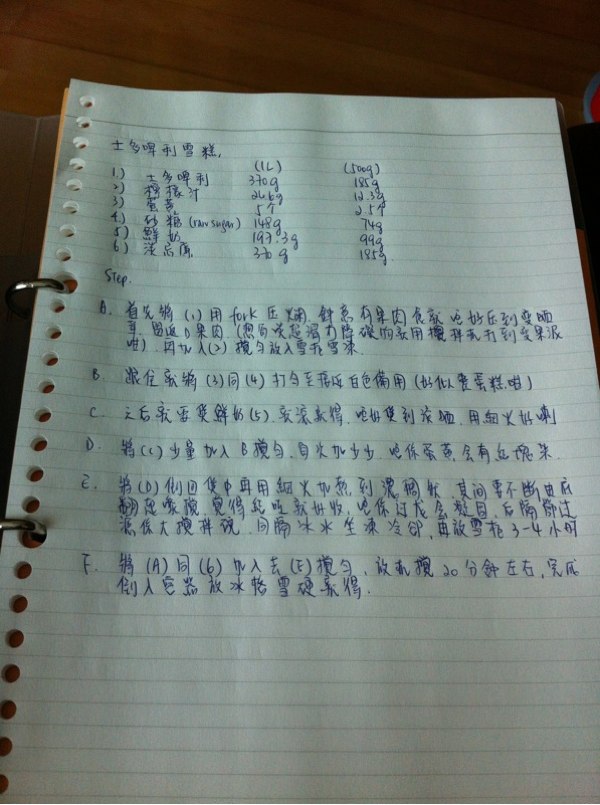 士多啤利雪糕,
(1L) (500g)
1.) 士多啤利 370g 185g
2) 檸檬汁 24.6g 12.3g
3) 蛋黃 5个 2.5个
4.) 砂糖 (raw sugar) 148g 74g
5.) 鮮奶 197.3g 99g
6.) 淡忌廉 370g 185g
Step.
A. 首先將 (1) 用 fork 压爛, 鍾意有果肉食就唔好压到變晒
耳, 留返D果肉, (想
咁) 加入(2) 攪勻放入雪柜雪凍
B 跟住就將 (3) 同 (4) 打勻至 白色備用 (好似 蛋糕咁)
C 之后就要煲鮮奶 (5), 就滾就得, 唔好煲到滾晒, 用細火好喇
D. 將 (C) 少量加入 B 攪勻, 自次加少少, 唔係蛋黃會有
E. 將 (D) 倒回煲中再用細火加熱到濃稠狀, 其間要不斷由底
攪, 覺得 就好收, 唔係过龙会 , 后隔篩过
濾係大攪拌碗, 同隔冰水坐凍冷卻, 再放雪柜 3-4 小时
F. 將 (A) 同 (6) 加入去 (E) 攪勻, 放机攪 20 分鐘左右, 完成
倒入容器放冰格雪硬就得.